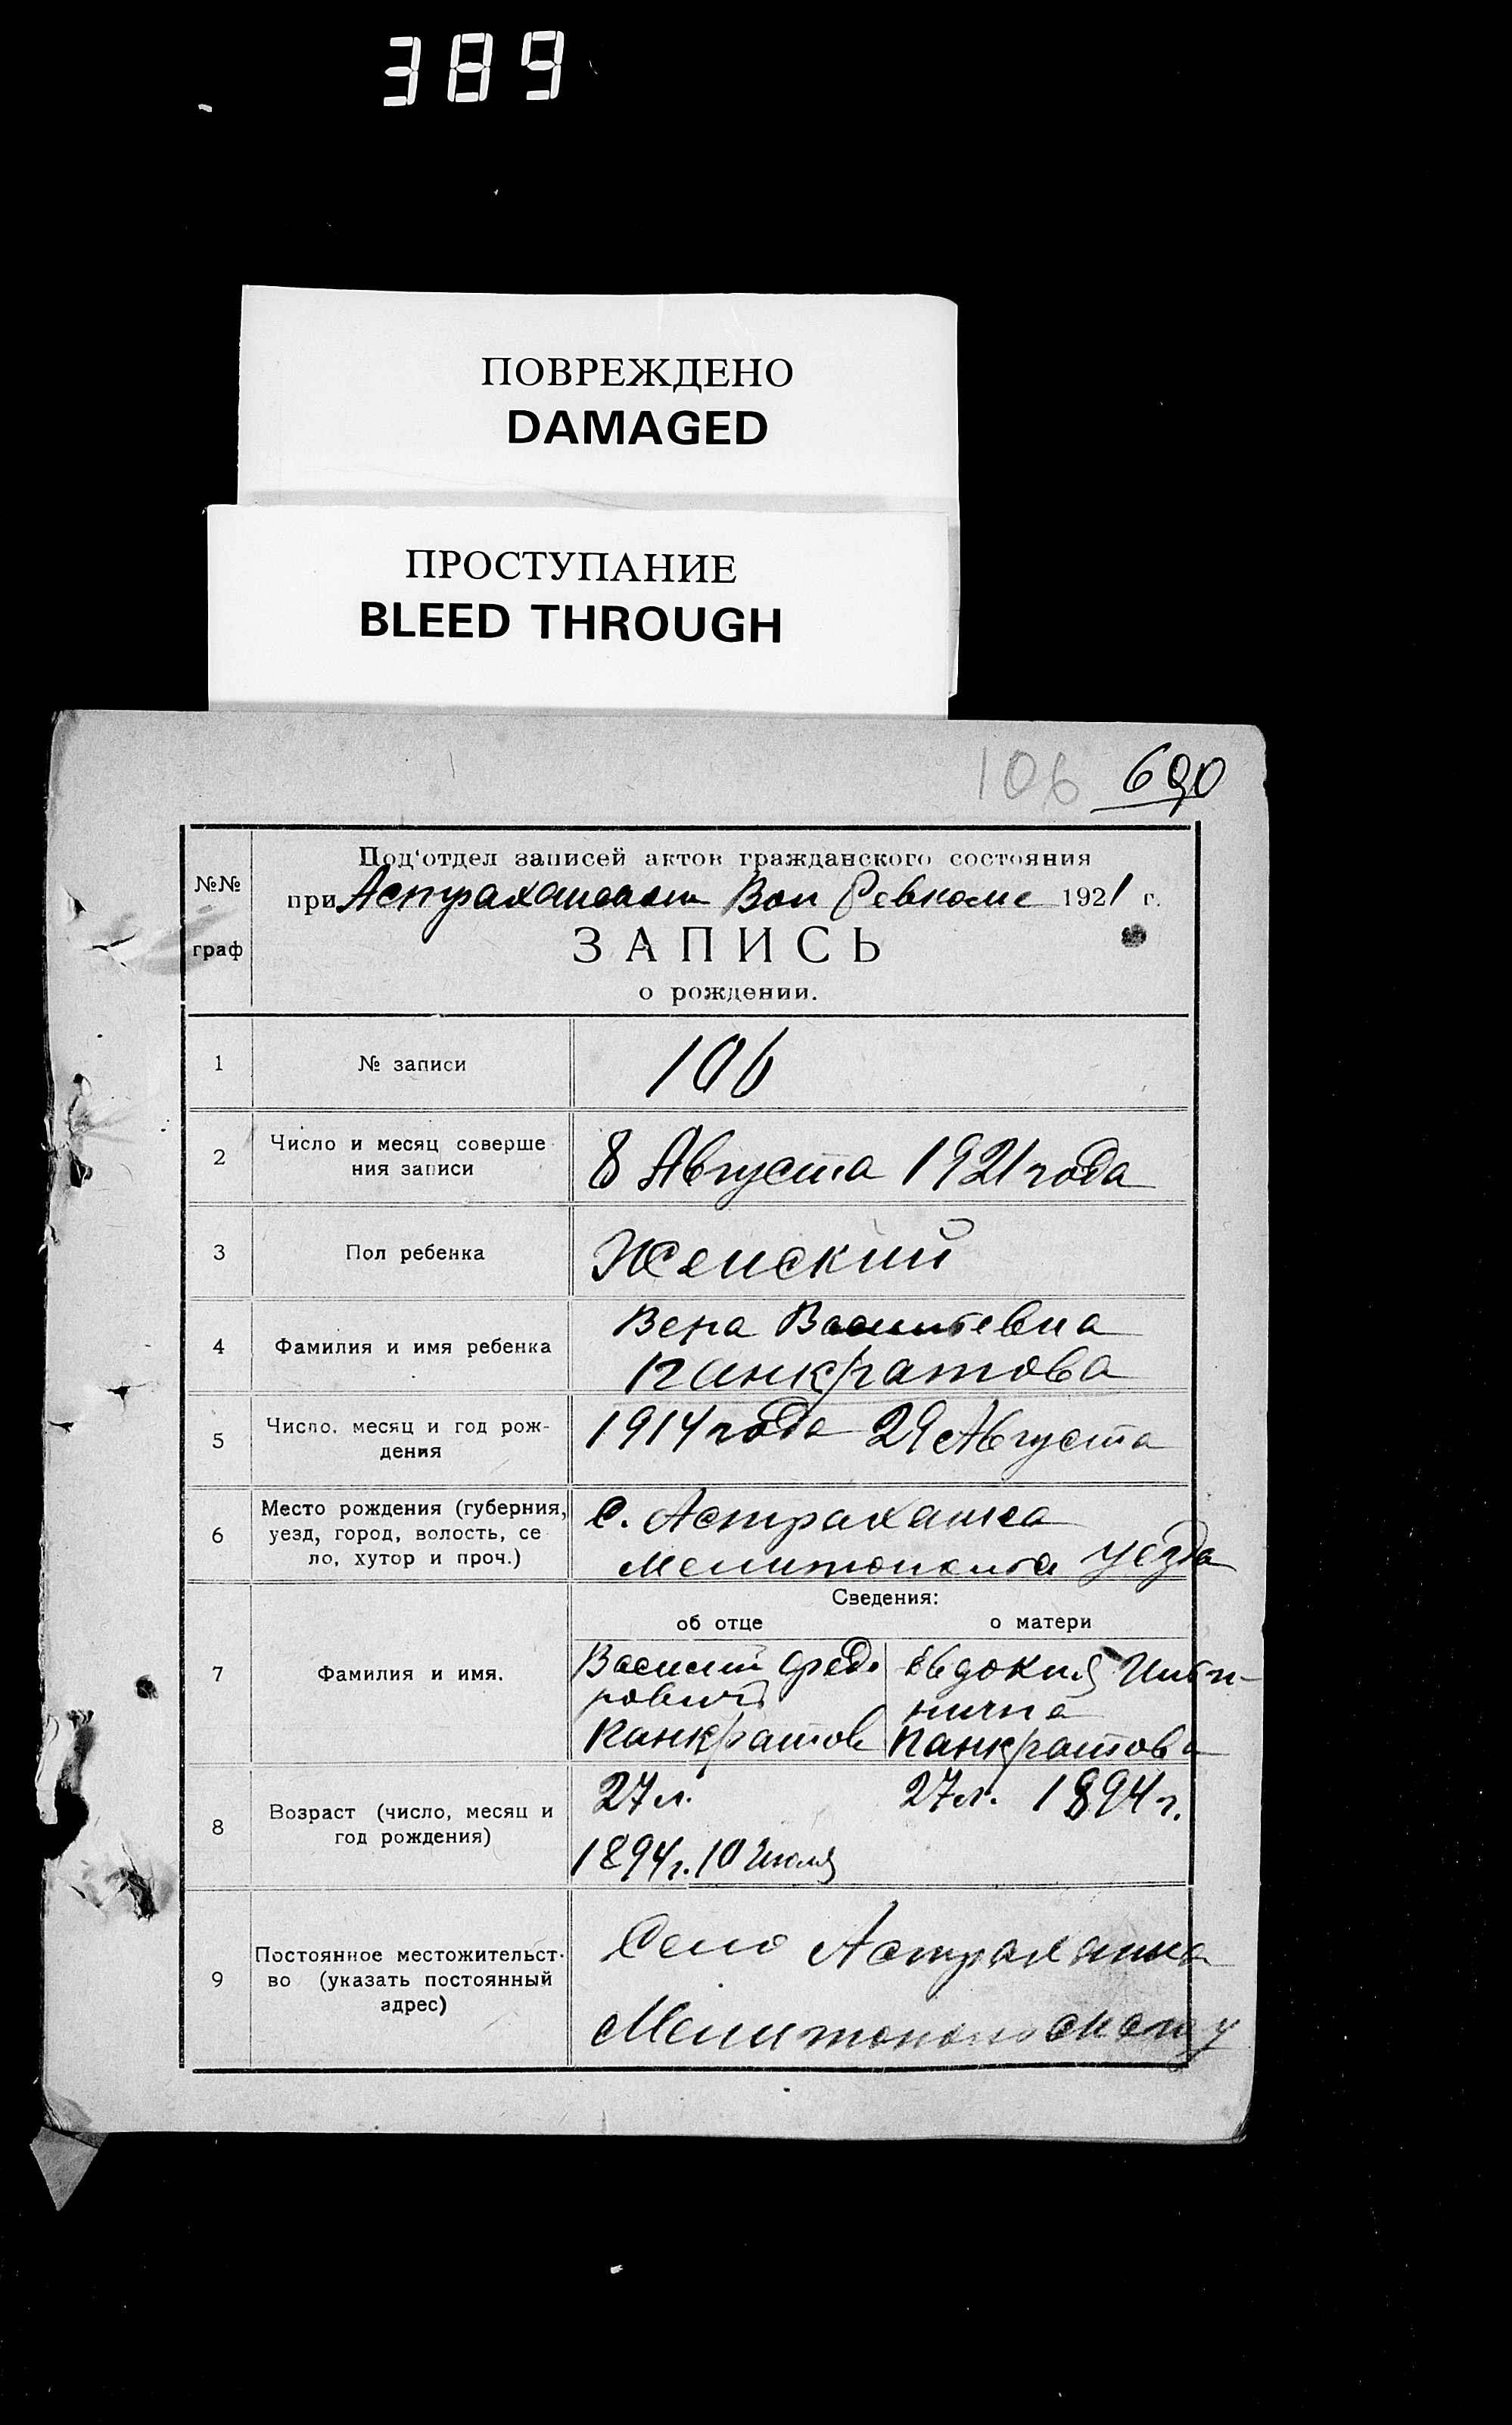 389
ПОВРЕЖДЕНО
DAMAGED
ПРОСТУПАНИЕ
BLEED THROUGH
106 690
№№
граф
Под‘отдел записей актов гражданского состояния
при Астраханском Вол Ревкоме 1921 г.
ЗАПИСЬ
о рождении.
1 № записи 106
2 Число и месяц соверше
ния записи
8 Августа 1921 года
3 Пол ребенка Женский
4 Фамилия и имя ребенка
Вера Васильевна
Панкратова
5 Число, месяц и год рож-
дения
1914 года 29 Августа
6 Место рождения (губерния,
уезд, город, волость, се
ло, хутор и проч.)
с. Астраханка
Мелитополья уезда
Сведения:
об отце о матери
7 Фамилия и имя.
Василий Федо
рович
Панкратов
Евдокия
нична
Панкратова
8 Возраст (число, месяц и
год рождения)
27 л.
1894 г. 10 Июля
27 л. 1894 г.
9 Постоянное местожительст-
во (указать постоянный
адрес)
Село Астраханка
Мелитопольск у